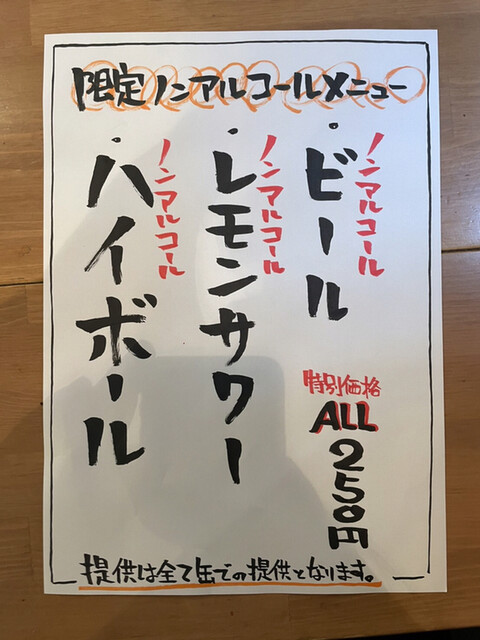 限定ノンアルコールメニュー
ノンアルコール
・ビール
ノンアルコール
・レモンサワー
ノンアルコール
・ハイボール
特別価格
ALL
250円
提供は全て缶での提供となります。